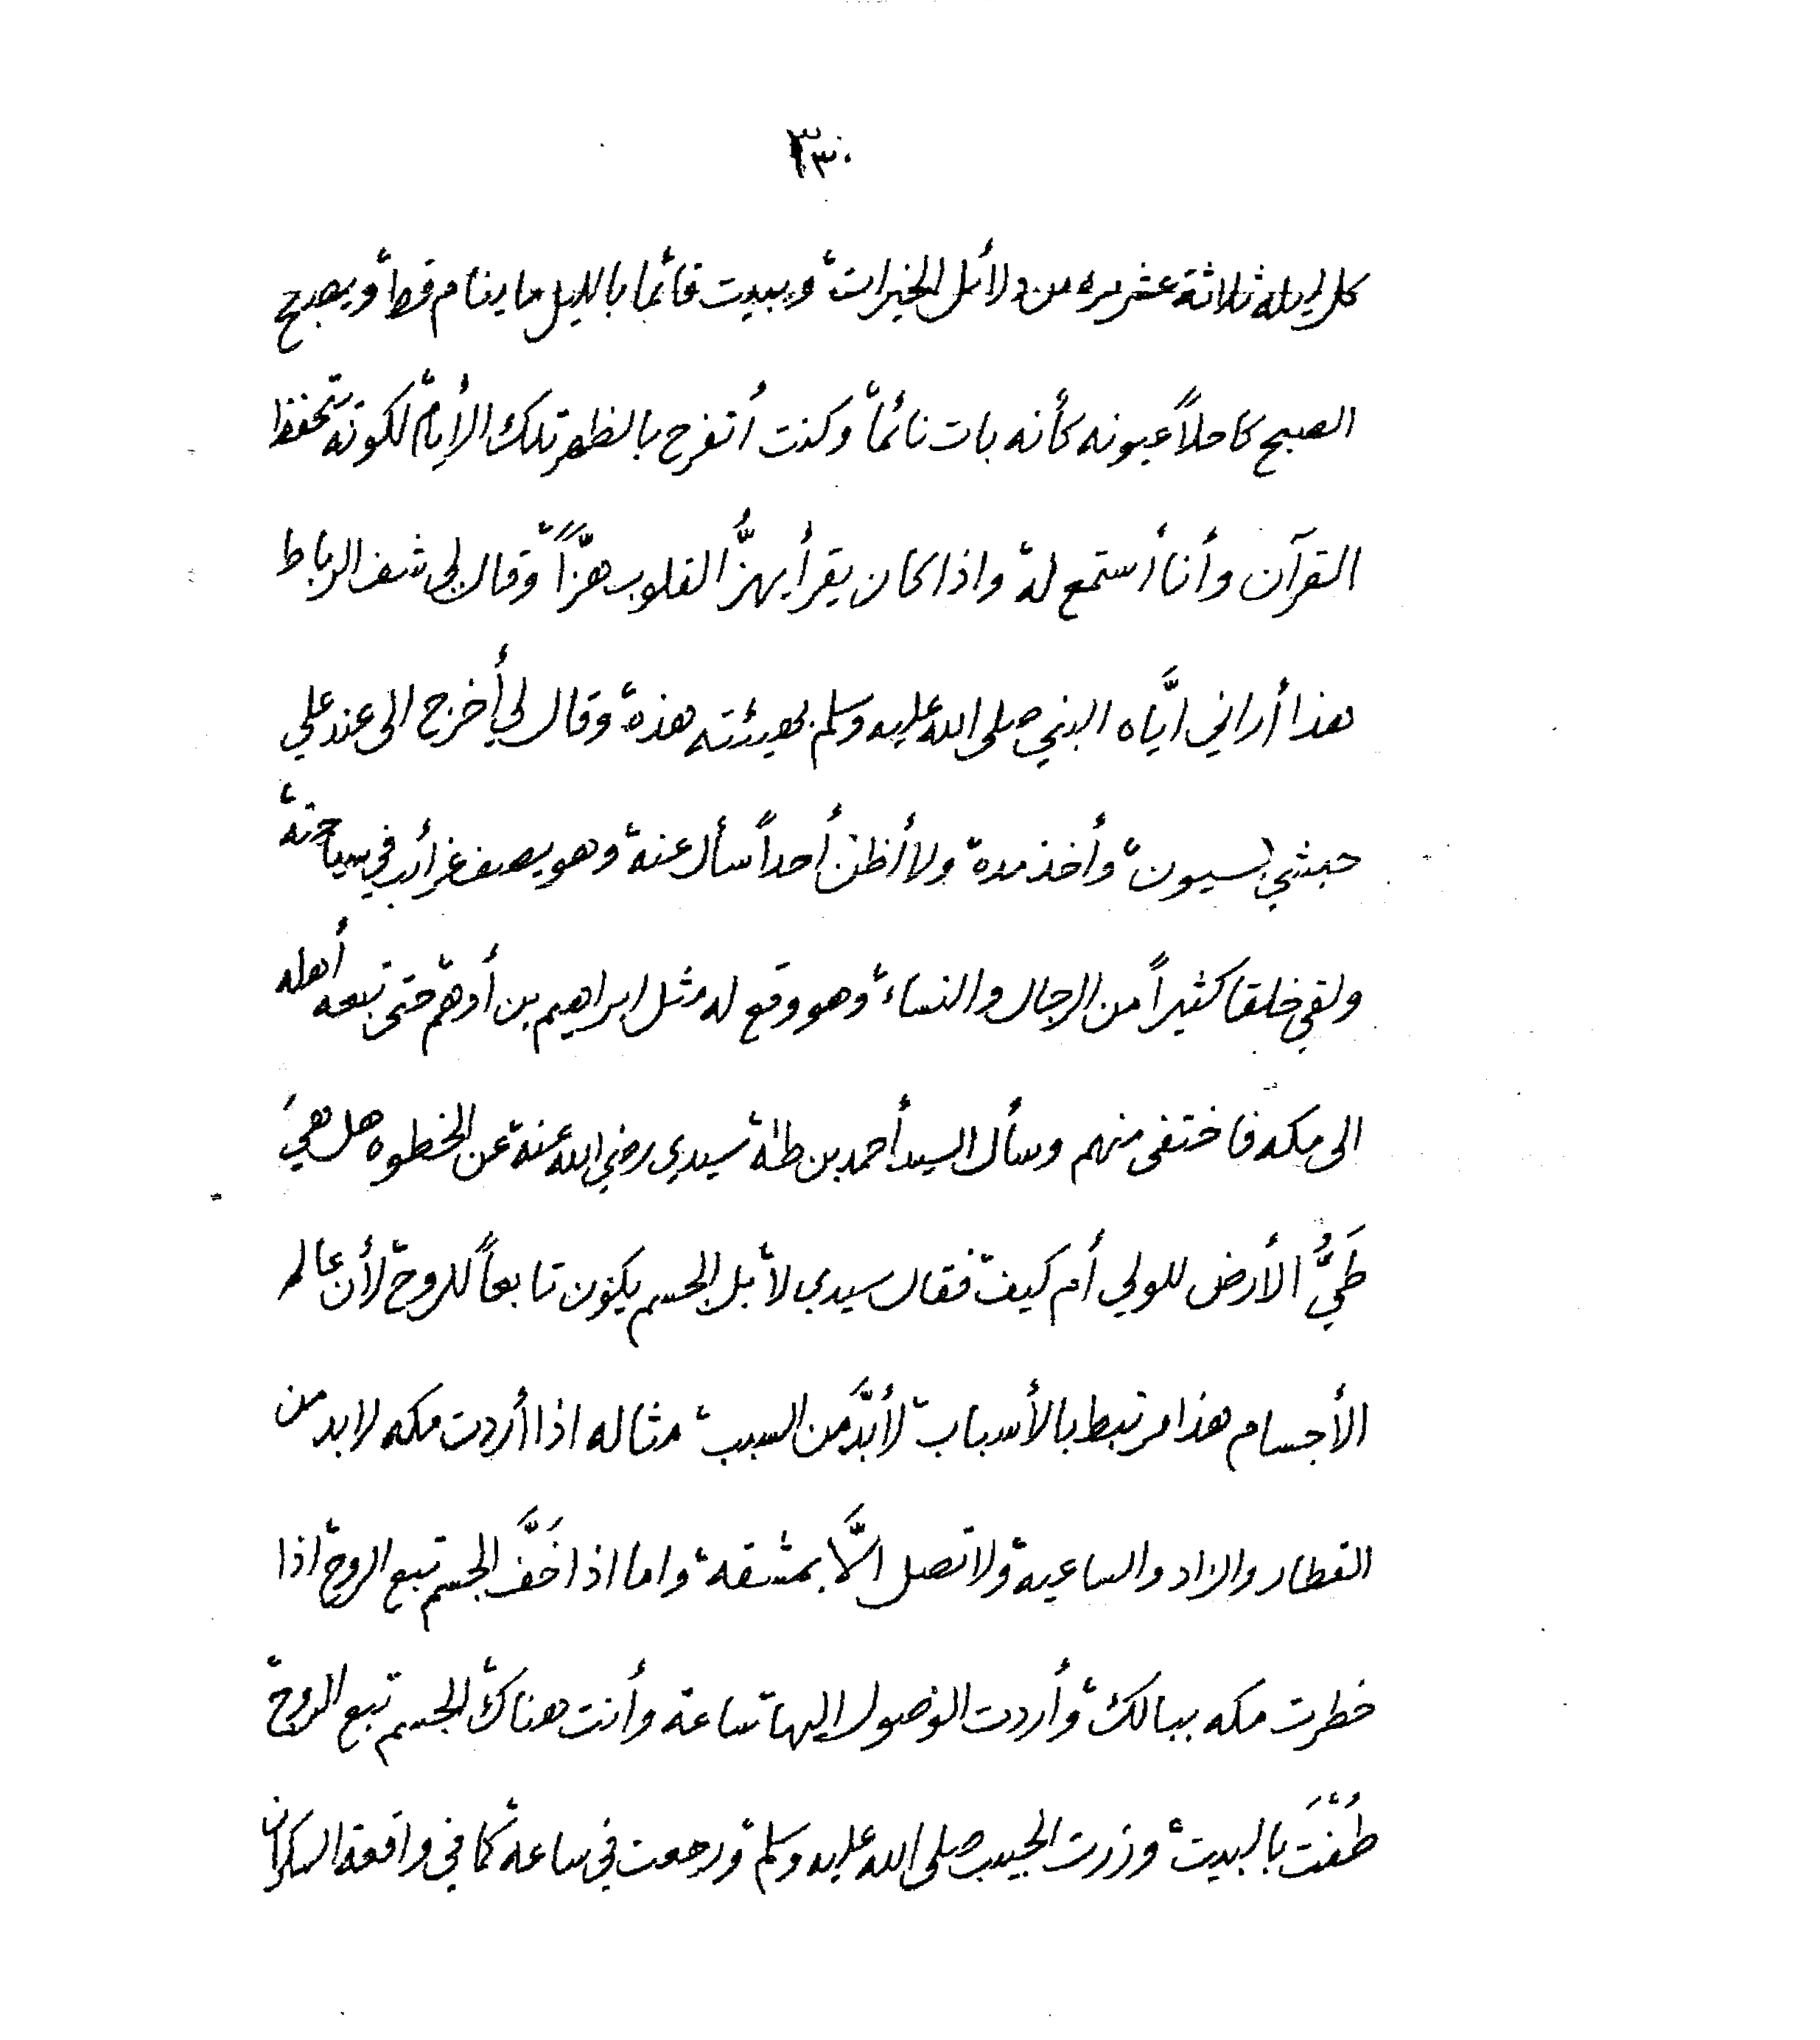 ٣٣٠
كل ليلة ثلاثة عشر مره من دلائل الخيرات، ويبيت قائما بالليل ما ينام قط، ويصبح
الصبح كاحلاً عيونه كأنه بات نائماً، وكنت أتفرح بالظهر تلك الأيام، لكونه يتحفظ
القرآن وأنا أستمع له، واذا كان يقرأ يهزُّ القلوب هزّاً، وقال لي شف الرباط
هذا أراني ايَّاه النبي صلى الله عليه وسلم بهيئته هذه، وقال لي أخرج الى عند علي
حبشي بسيون، وأخذ مده، ولا أظن أحداً سأل عنه، وهو يصف غرائب في سياحته،
ولقي خلقا كثيراً من الرجال والنساء، وهو وقع له مثل ابراهيم بن أدهم، حتى تبعه أهله
الى مكه فاختفى منهم وسأل السيد أحمد بن طه، سيدي رضي الله عنه، عن الخطوه هل هيَ
طَيُّ الأرض للولي أم كيف، فقال سيدي لا، بل الجسم يكون تابعاً للروح، لأن عالم
الأجسام هذا مرتبط بالأسباب، لابدَّ من السبب، مثاله اذا أردت مكه لا بد من
القطار والزاد والساعية، ولا تصل الَّا بمشقه، واما اذا خَفَّ الجسم تبع الروح، اذا
خطرت مكه ببالك، وأردت الوصول اليها، ساعة وأنت هناك، الجسم تبع الروح،
طُفْتَ بالبيت، وزرت الحبيب صلى الله عليه وسلم، ورجعت في ساعه، كما في واقعة السكران